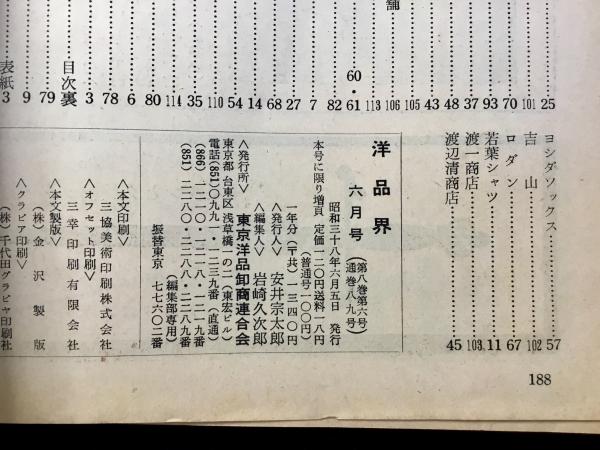 ヨシダソックス……57
吉山……102
ロダン……67
若葉シャツ……11
渡一商店……103
渡辺清商店……45
25
101
12
70
93
37
48
43
105
106
113
60・61
82
7
27
68
14
54
110
35
114
80
6
78
3
目次裏
79
9
表紙3
洋品界
六月号 (第八巻第六号)
(通巻八九号)
昭和三十八年六月五日 発行
本号に限り増頁 定価一二〇円送料一八円
(普通号一〇〇円)
一年分(〒共)一三四〇円
<発行人> 安井宗太郎
<編集人> 岩崎久次郎
<発行所> 東京洋品卸商連合会
東京都台東区浅草橋一の二(東宏ビル)
電話(851)〇九九一・一二三九番(直通)
(866)一二一〇・一二一八・一二一九番
(編集部専用)
(851)二二八〇・二二八八・二二八九番
振替東京 七七六〇二番
<本文印刷>
三協美術印刷株式会社
<オフセット印刷>
三幸印刷有限会社
<本文製版>
(株)金沢製版
<グラビア印刷>
(株)千代田グラビヤ印刷社
188